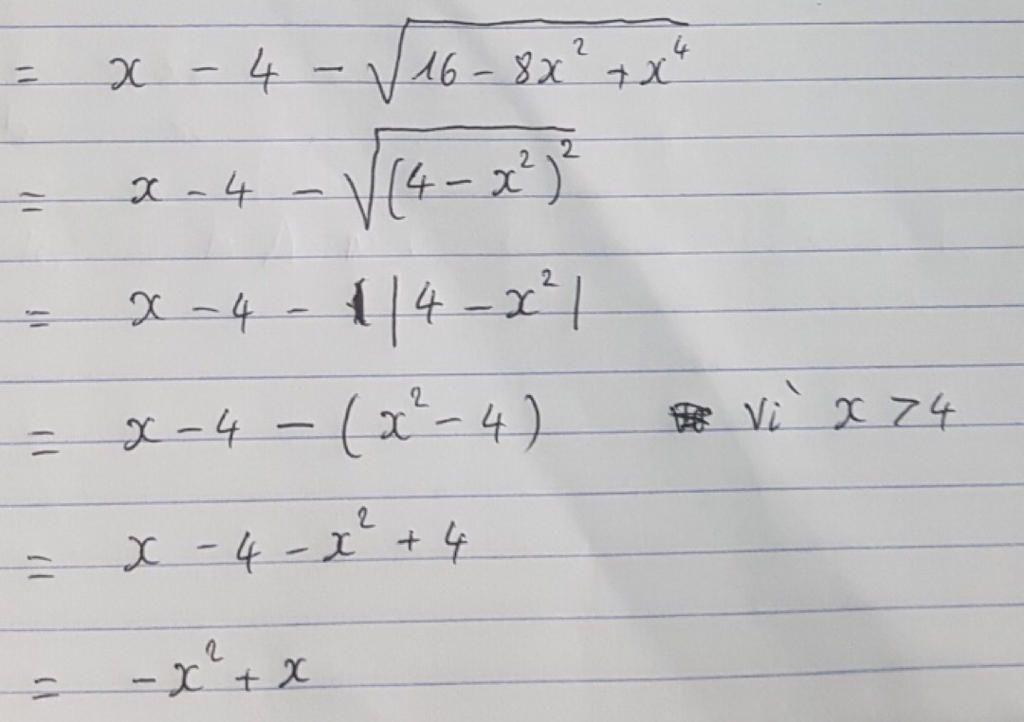 = x - 4 - √(16 - 8x² + x⁴)
= x - 4 - √((4 - x²)²)
= x - 4 - |4 - x²|
= x - 4 - (x² - 4) Vì x > 4
= x - 4 - x² + 4
= -x² + x